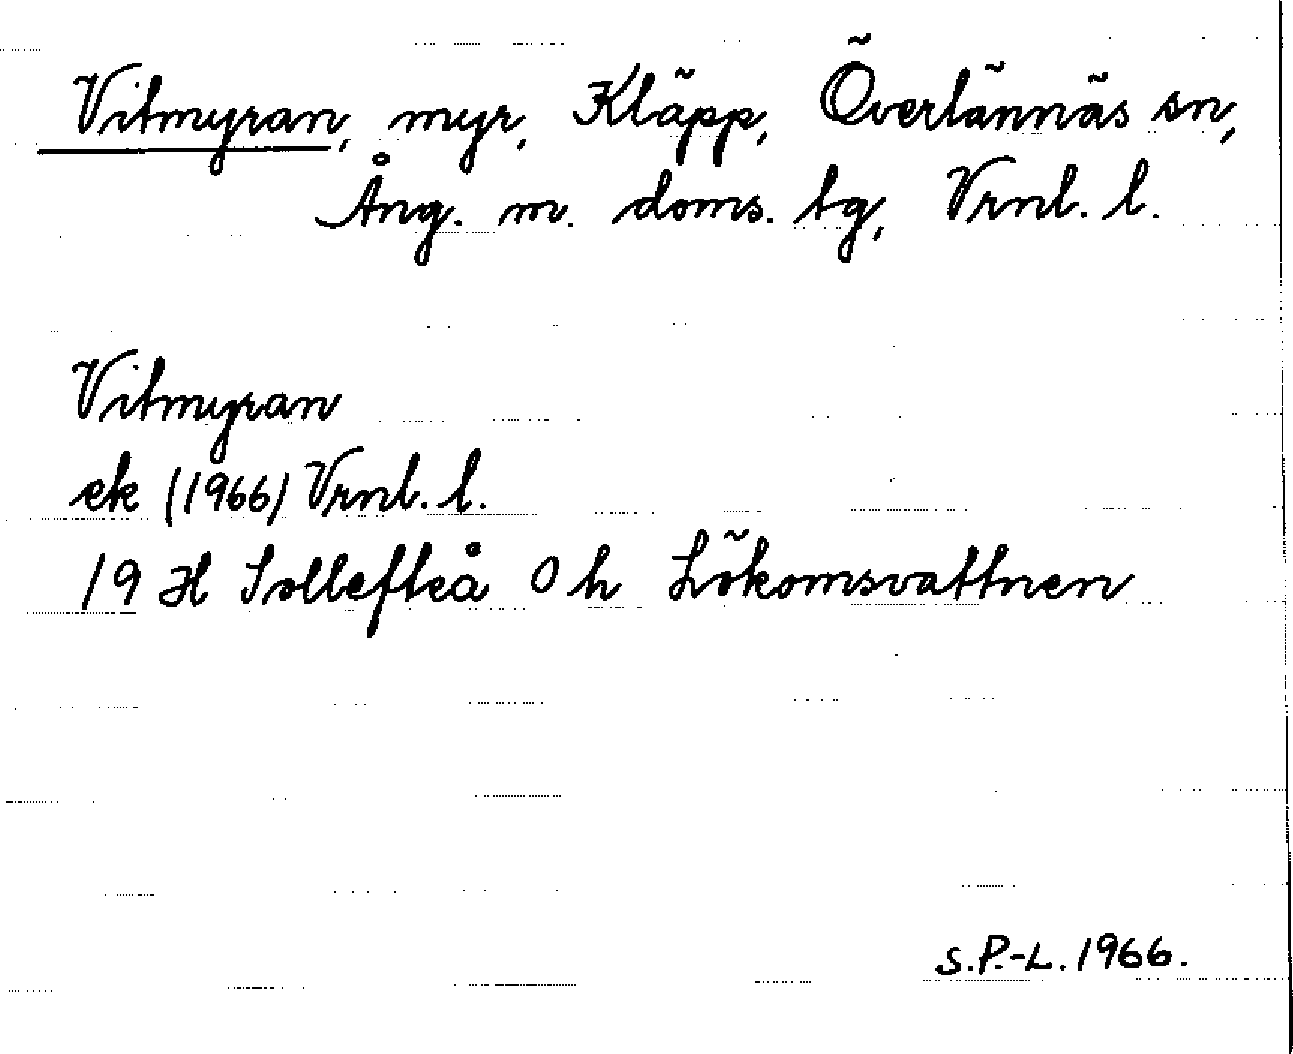 Vitmyran, myr, Kläpp, Överlännäs sn,
Ång. m. doms. tg, Vrnl. l.
Vitmyran
ek (1966) Vrnl. l.
19 H Sollefteå 0 h Lökomsvattnen
s.P.-L. 1966.